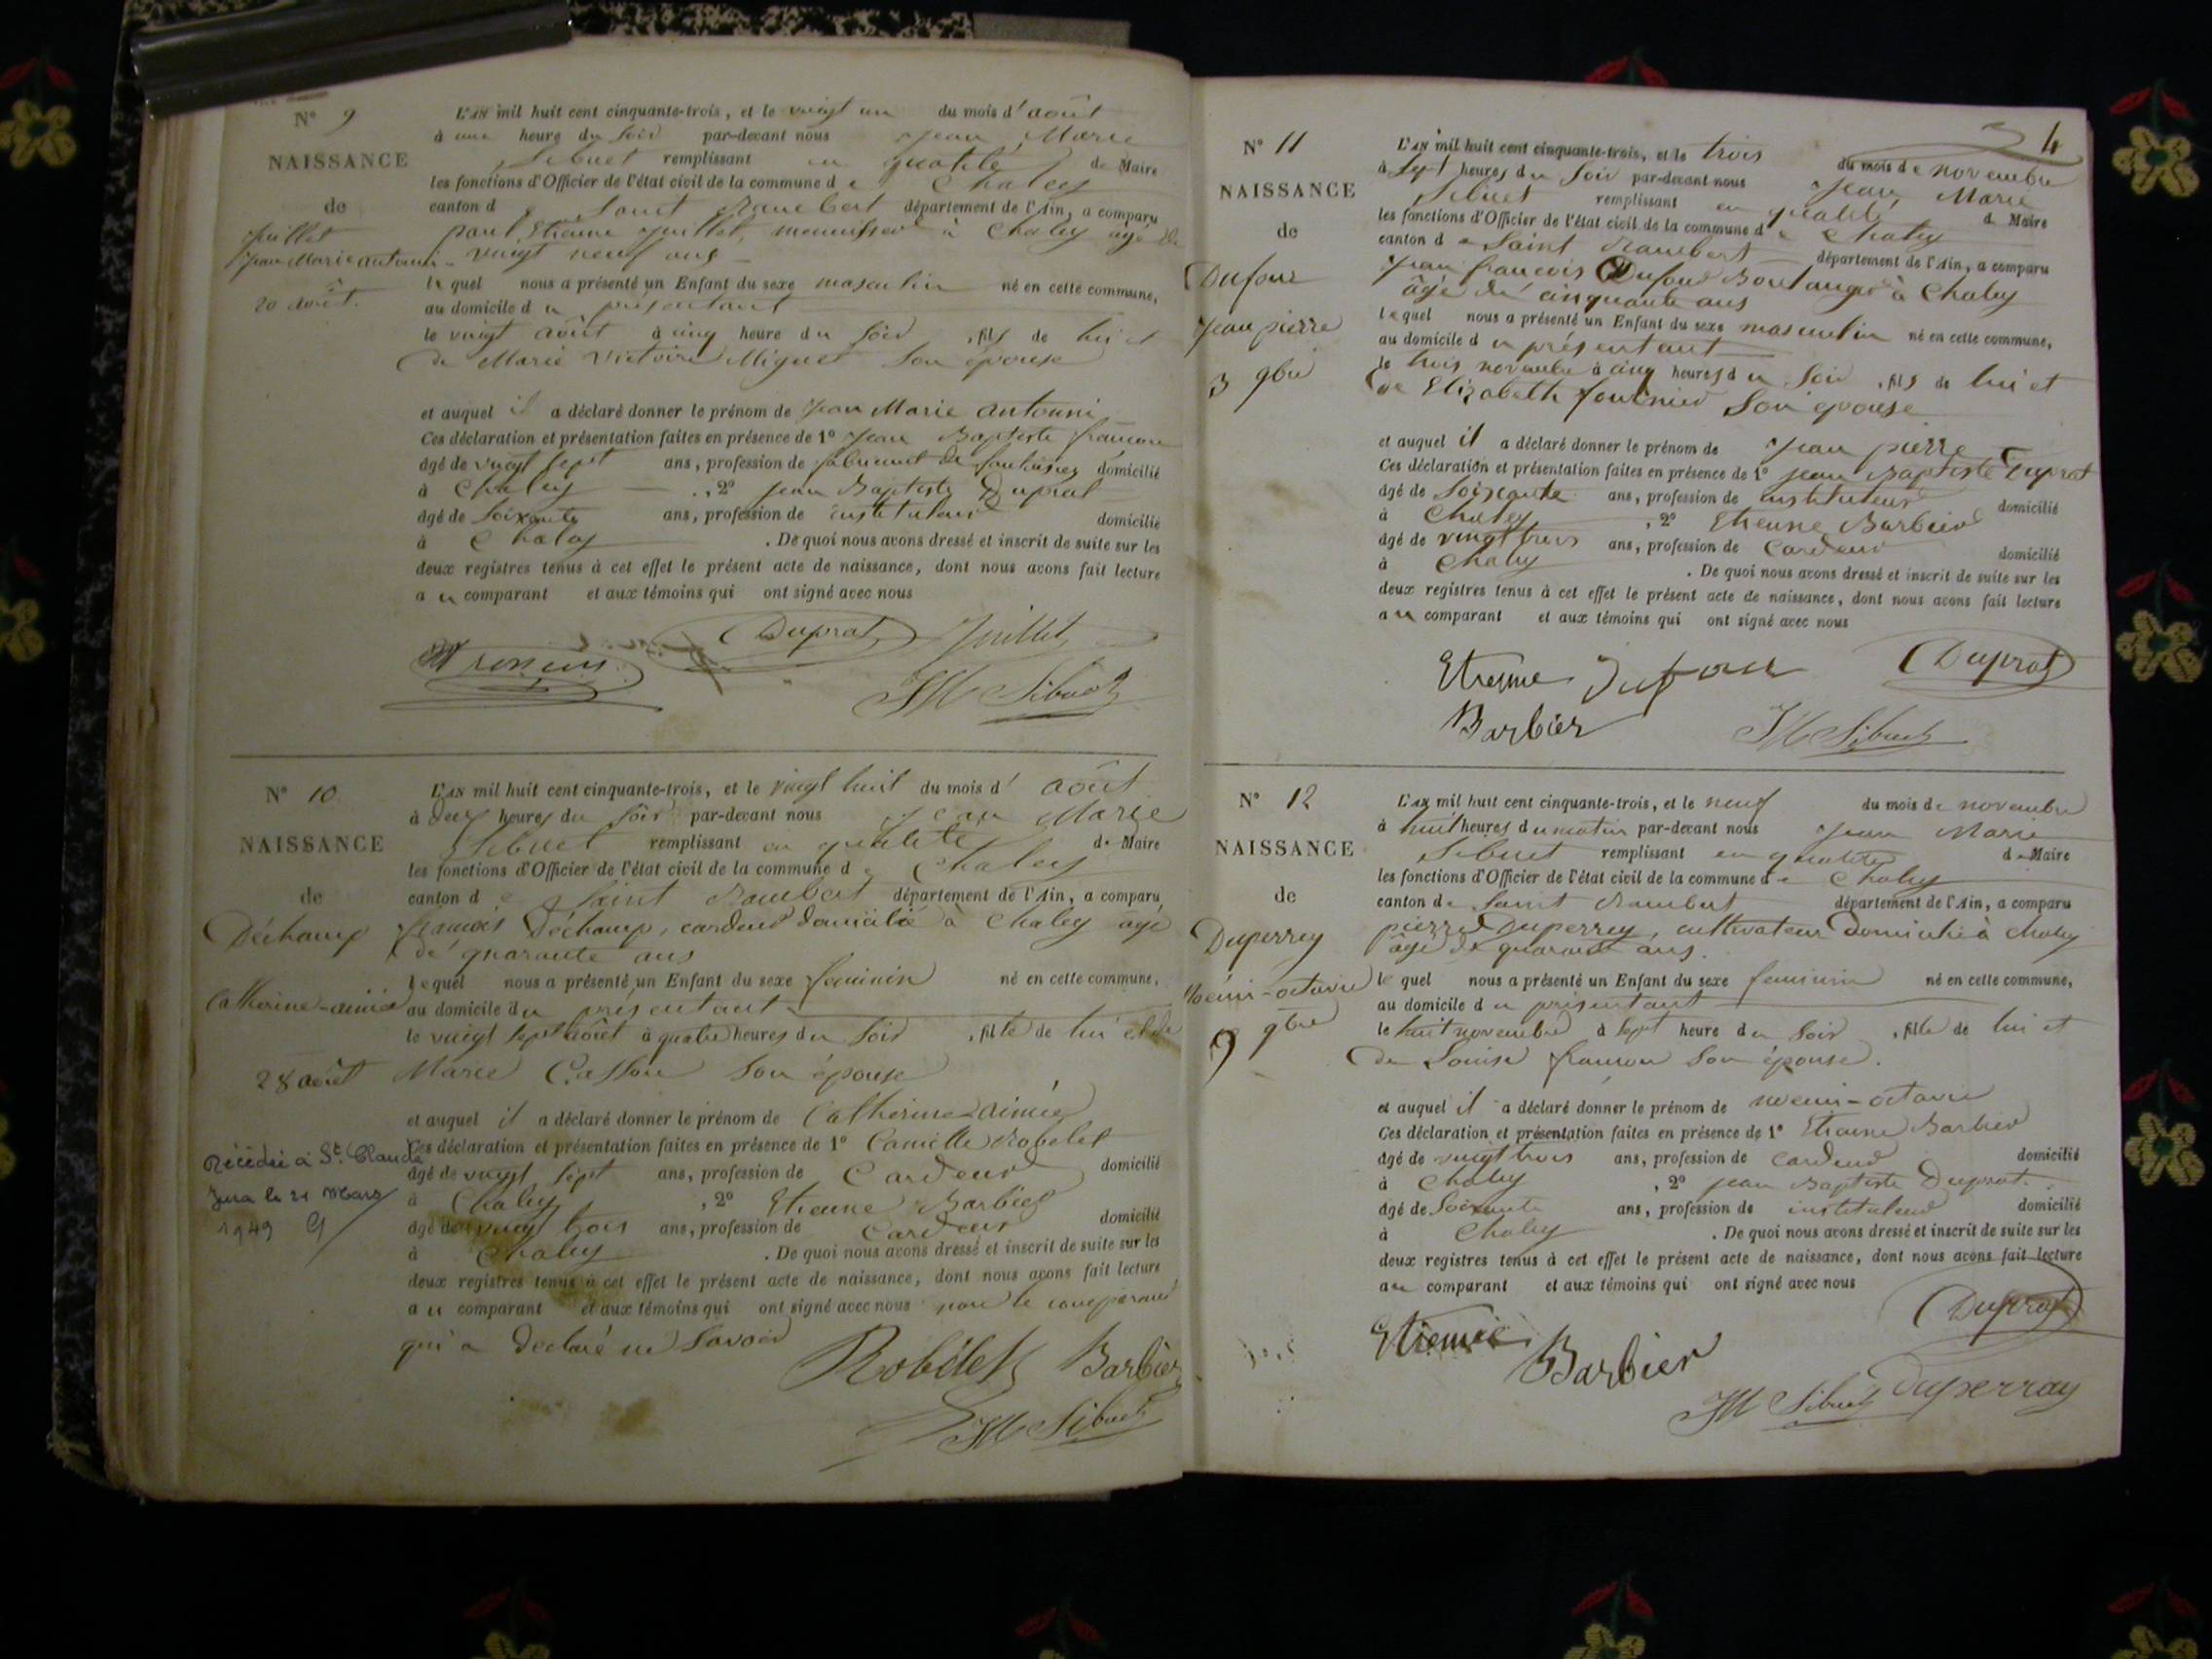 N° 9
NAISSANCE
de
Juillet
Jean Marie antouni
20 août.
L'AN mil huit cent cinquante-trois, et le vingt un du mois d'août
à une heure du soir par-devant nous Jean Marie
Sibuet remplissant en qualité de Maire
les fonctions d'Officier de l'état civil de la commune de Chaley
canton de Saint Rambert département de l'Ain, a comparu
paul Etienne Juillet, menuisier à Chaley âgé de
vingt neuf ans
lequel nous a présenté un Enfant du sexe masculin né en cette commune,
au domicile du présentant
le vingt août à cinq heure du soir, fils de lui et
de Marie Victoire Miguet son épouse
et auquel il a déclaré donner le prénom de Jean Marie antouni
Ces déclaration et présentation faites en présence de 1° Jean Baptiste françon
âgé de vingt sept ans, profession de fabricant de domicilié
à Chaley, 2° Jean Baptiste Duprat
âgé de soixante ans, profession de instituteur domicilié
à Chaley. De quoi nous avons dressé et inscrit de suite sur les
deux registres tenus à cet effet le présent acte de naissance, dont nous avons fait lecture
au comparant et aux témoins qui ont signé avec nous
Duprat Juillet
JM Sibuet
N° 10
NAISSANCE
de
Déchamp
Catherine-aimée
28 août
Décédée à St. Claude
Jura le 21 Mars
1949
L'AN mil huit cent cinquante-trois, et le vingt huit du mois d'août
à deux heures du soir par-devant nous Jean Marie
Sibuet remplissant en qualité de Maire
les fonctions d'Officier de l'état civil de la commune de Chaley
canton de Saint Rambert département de l'Ain, a comparu
françois Déchamp, cardeur domicilié à Chaley âgé
de quarante ans
lequel nous a présenté un Enfant du sexe feminin né en cette commune,
au domicile du présentant
le vingt sept août à quatre heures du soir, fille de lui et de
Marie Casson son épouse
et auquel il a déclaré donner le prénom de Catherine-aimée
Ces déclaration et présentation faites en présence de 1° Camille Robelet
âgé de vingt sept ans, profession de Cardeur domicilié
à Chaley, 2° Etienne Barbier
âgé de vingt trois ans, profession de Cardeur domicilié
à Chaley. De quoi nous avons dressé et inscrit de suite sur les
deux registres tenus à cet effet le présent acte de naissance, dont nous avons fait lecture
au comparant et aux témoins qui ont signé avec nous non le comparant
qui a declaré ne savoir
Robélet Barbier
JM Sibuet
4
N° 11
NAISSANCE
de
Dufour
Jean pierre
3 9bre
L'AN mil huit cent cinquante-trois, et le trois du mois de novembre
à sept heures du soir par-devant nous Jean Marie
Sibuet remplissant en qualité de Maire
les fonctions d'Officier de l'état civil de la commune de Chaley
canton de Saint Rambert département de l'Ain, a comparu
Jean françois Dufour Boulanger à Chaley
âgé de cinquante ans
lequel nous a présenté un Enfant du sexe masculin né en cette commune,
au domicile du présentant
le trois novembre à cinq heures du soir, fils de lui et
de Elizabeth fournier son épouse
et auquel il a déclaré donner le prénom de Jean pierre
Ces déclaration et présentation faites en présence de 1° Jean Baptiste Duprat
âgé de soixante ans, profession de instituteur domicilié
à Chaley, 2° Etienne Barbier
âgé de vingt trois ans, profession de Cardeur domicilié
à Chaley. De quoi nous avons dressé et inscrit de suite sur les
deux registres tenus à cet effet le présent acte de naissance, dont nous avons fait lecture
au comparant et aux témoins qui ont signé avec nous
Etienne Dufour Duprat
Barbier JM Sibuet
N° 12
NAISSANCE
de
Duperrey
Noémi-octavie
9 9bre
L'AN mil huit cent cinquante-trois, et le neuf du mois de novembre
à huit heures du matin par-devant nous Jean Marie
Sibuet remplissant en qualité de Maire
les fonctions d'Officier de l'état civil de la commune de Chaley
canton de Saint Rambert département de l'Ain, a comparu
pierre Duperrey, cultivateur Domicilié à Chaley
âgé de quarante ans.
lequel nous a présenté un Enfant du sexe feminin né en cette commune,
au domicile du présentant
le huit novembre à sept heure du soir, fille de lui et
de Louise françon son épouse.
et auquel il a déclaré donner le prénom de noemi-octavie
Ces déclaration et présentation faites en présence de 1° Etienne Barbier
âgé de vingt trois ans, profession de cardeur domicilié
à Chaley, 2° Jean Baptiste Duprat.
âgé de soixante ans, profession de instituteur domicilié
à Chaley. De quoi nous avons dressé et inscrit de suite sur les
deux registres tenus à cet effet le présent acte de naissance, dont nous avons fait lecture
au comparant et aux témoins qui ont signé avec nous
Duprat
Etienne Barbier
JM Sibuet Duperray